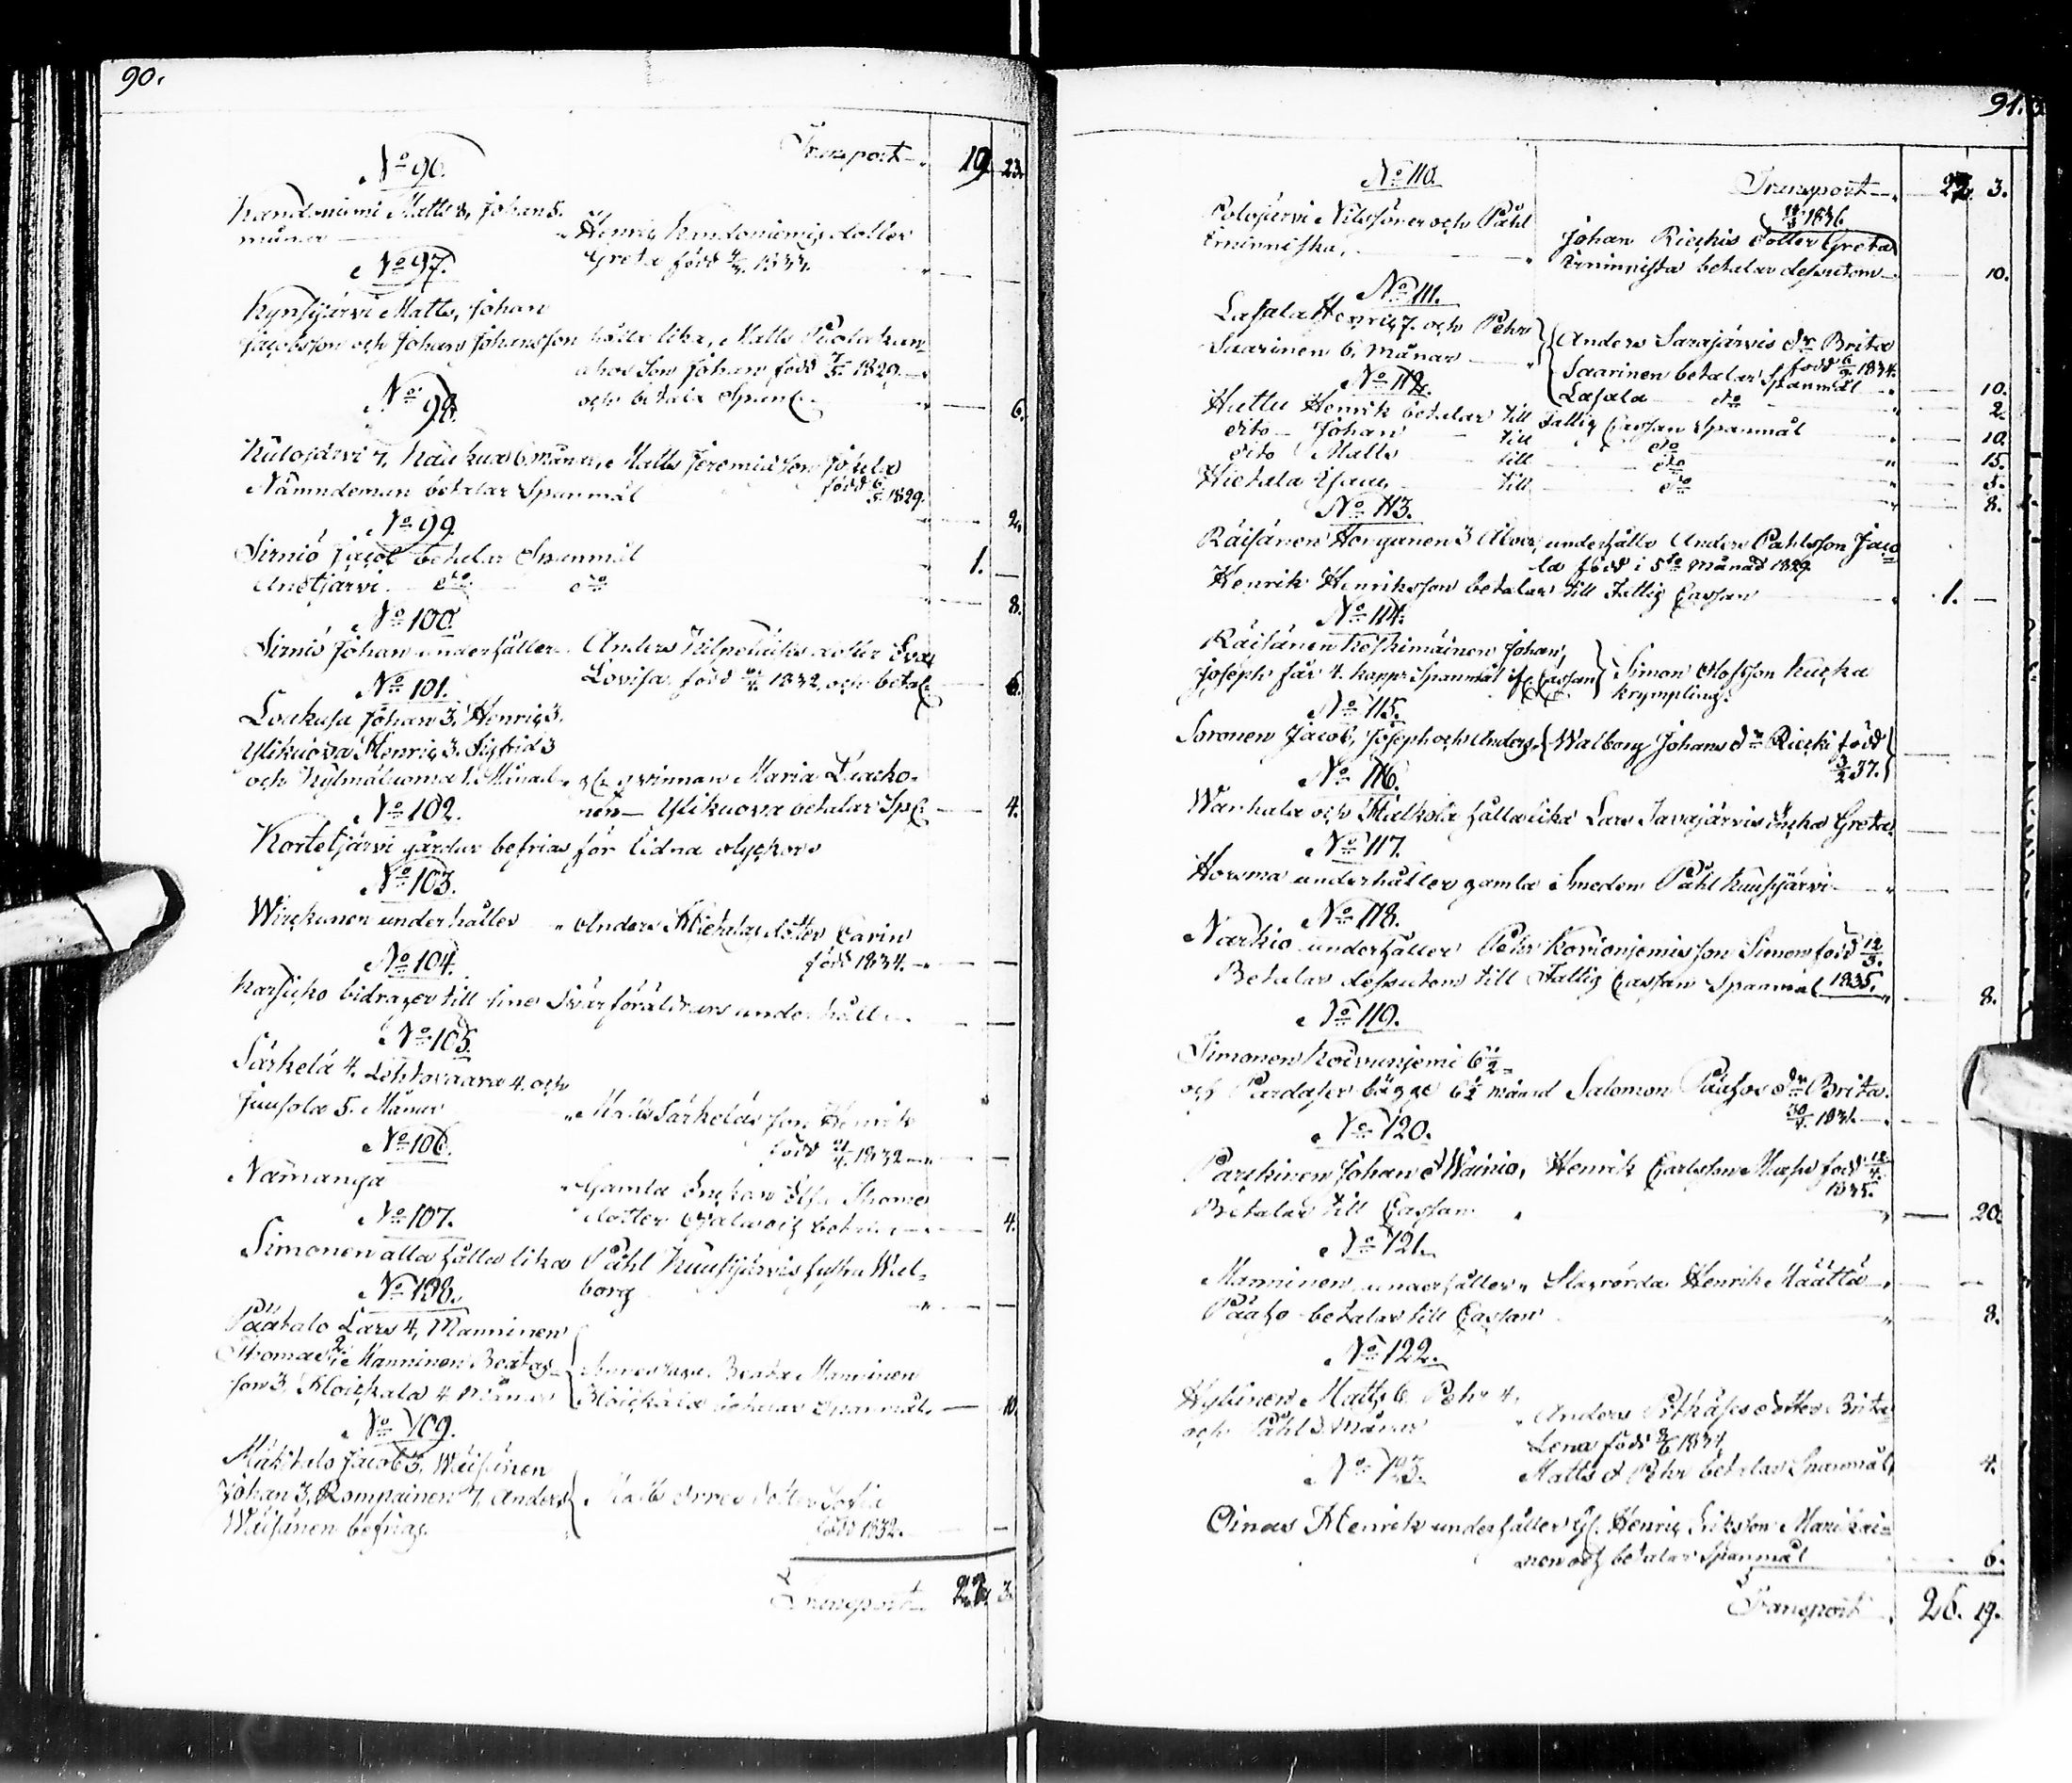 90.
Transport 19 23.
No 96.
Kandoniemi Matts 8, Johan 5.
månar Henric Kandoniemis dotter
Greta född 1833.
No 97.
Kynsijärvi Matts, Johan
Jacobsson och Johan Johansson hålla lika, Matts Puolakan-
ahos Son Johan född 1829.
och betala Spanl 6.
No 98.
Kulojärvi 7, Kaukua 6 månar, Matts Jeremiasson Jokela
född 6/5 1829.
Nämndeman betalar Spanmål 2.
No 99.
Sirniö Jacob betalar Spanmål 1.
do do 8.
No 100.
Sirniö Johan underhåller Anders dotter Eva
Lovisa född 1832, och betal 6.
No 101.
Loukusa Johan 3, Henric 3.
Ylikuova Henric 3. Sigfrid 3
och Kylmäluoma 1. Månad qvinnan Maria
nen Ylikuova betalar Sp 4.
No 102.
Kortetjärvi gårdar befrias för lidna olyckor
No 103.
Wirckunen underhåller Anders Hietalas dotter Carin
född 1834.
No 104.
Karjuko bidrager till sine Svärföräldrars underhåll
No 105.
Särkelä 4. Lehtovaara 4. och
Juusola 5. Månar Matts Särkeläs son Henrik
född 1832
No 106.
Nämänga Gamla Enckan Elsa Thomæ
dotter 4.
No 107.
Simonen alla hålla lika Påhl Kuusijärvis hustru Wal-
borg
No 108.
Päätalo Lars 4, Manninen
Thomas 2 Manninen Beatas
son 3, Moickala 4 Månar Beata Manninen
Moickala betalar Spanmål 10.
No 109.
Mäkitalo Jacob 3, Wäisänen
Johan 3, Rompainen 7, Anders Matts dotter Sofia
Wäisänen befrias. född 1832.
Transport 22 3.
91.
No 110.
Transport 22 3.
1836
Polojärvi Nilssöner och Påhl Johan Rieckis dotter Greta
Erninniska, Erninnista betalar dessutom 10.
No 111.
Lasala Henric 7. och Pehr Anders Sarajärvis dr Brita
Saarinen 6, månar född 6/9 1834.
Saarinen betalar Spanmål 10.
Lasala do 2.
No 112.
Huttu Henrik betalar till Fattig Cassan Spanmål 10.
dito Johan till do 15.
dito Matts till do 5.
Hietala Isaac till do 8.
No 113.
Räisänen Honganen 3 Alve, underhålle Anders Påhlsson Jaco
la född i 5te månad 1829.
Henrik Henriksson betalar till Fattig Cassan 1.
No 114.
Räisänen Koskimäinen Johan,
Joseph får 4. kappr Spanmål af Cassan Simon Olofsson Kucka
krympling.
No 115.
Soronen Jacob, Joseph och Anders Walborg Johans dr Riecki född
3/2 37.
No 116.
Warhala och Halkola hålla lika Lars Javajärvis Encka Greta.
No 117.
Horsma underhåller gamla Smeden Påhl Kuusijärvi
No 118.
Narkio underhåller Pehr Korvoniemis son Simon född 12/3.
Betalar dessutom till Fattig Cassan Spanmål 1835. 8.
No 119.
Simonen Koivuniemi 6½
och Pardasen bägge 6½ månad Salomon Pääsos dr Brita.
30/4 1831.
No 120.
Parckinen Johan & Wainio, Henrik Carlsson född 12/4
1835.
Betalar till Cassan 20.
No 121.
Manninen underhåller Slagrörda Henrik Määttä
Pääso betalar till Cassan 8.
No 122.
Hytinen Matts 6 Pehr 4.
och Påhl 3 Månar Anders Pitkäses dotter Brita
Lena född 1834
Matts & Pehr betalar Spanmål 4.
No 123.
Oinas Henrik underhåller Gl. Henric Eriksson Manikai-
nen och betalar Spanmål 6.
Transport 26. 19.